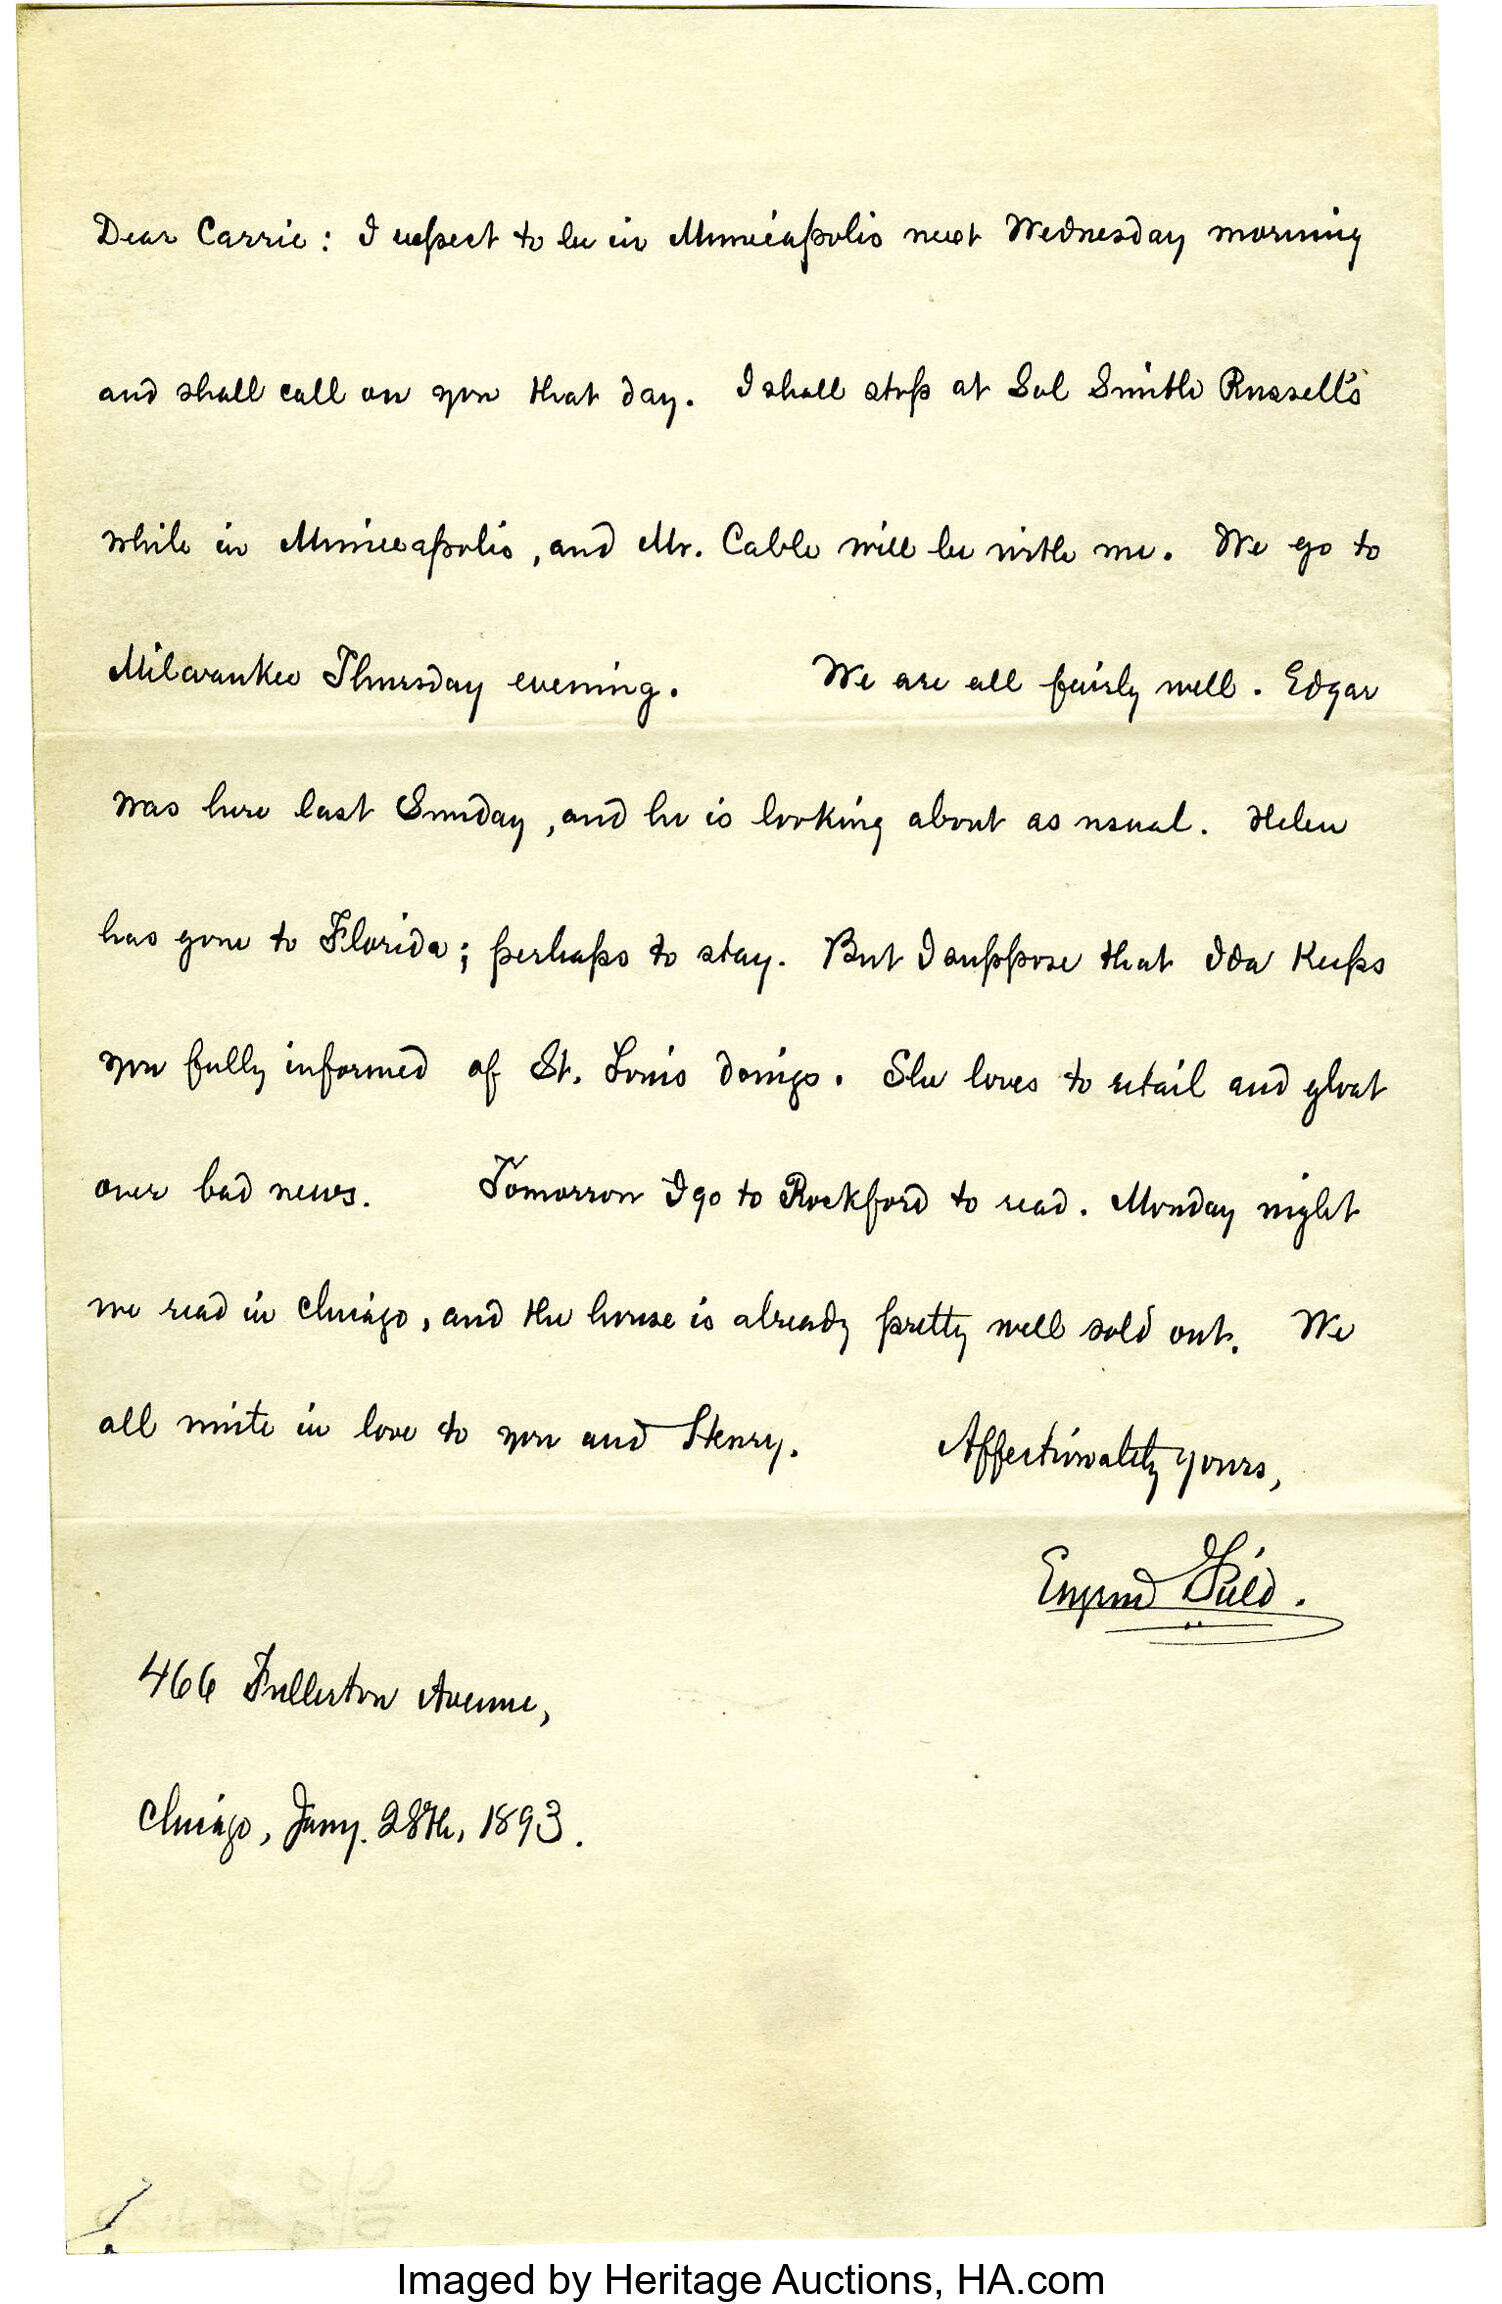 Dear Carrie: I expect to be in Minneapolis next Wednesday morning
and shall call on you that day. I shall stop at Sol Smith Russell's
while in Minneapolis, and Mr. Cable will be with me. We go to
Milwaukee Thursday evening. We are all fairly well. Edgar
was here last Sunday, and he is looking about as usual. Helen
has gone to Florida; perhaps to stay. But I suppose that Ida keeps
you fully informed of St. Louis doings. She loves to retail and gloat
over bad news. Tomorrow I go to Rockford to read. Monday night
we read in Chicago, and the house is already pretty well sold out. We
all unite in love to you and Henry. Affectionately yours,
Eugene Field.
466 Fullerton Avenue,
Chicago, Jany. 28th, 1893.
Imaged by Heritage Auctions, HA.com